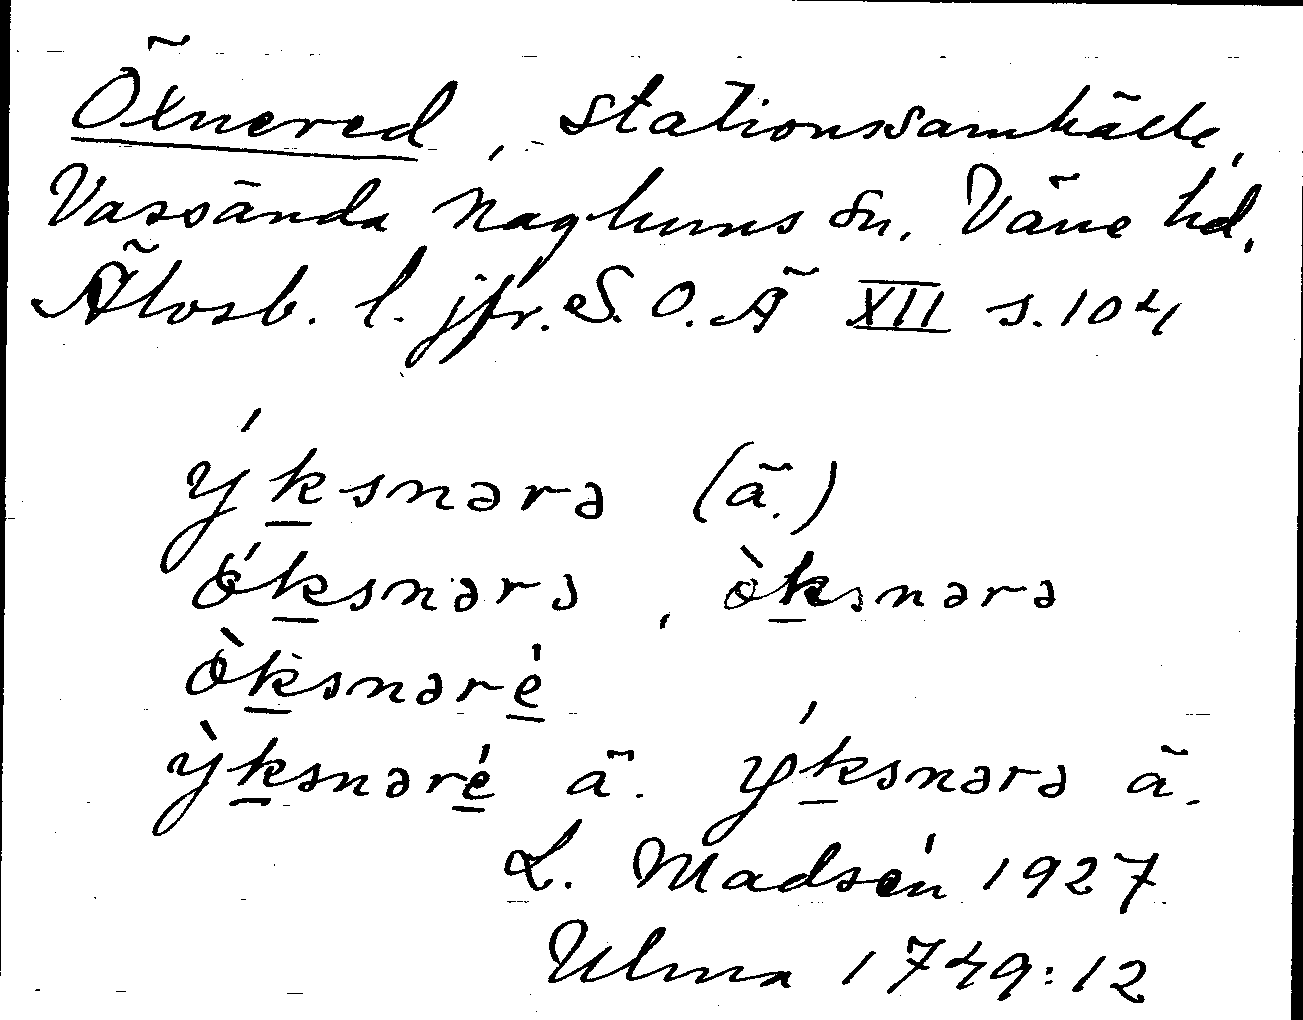 Öxnered, stationssamhälle,
Vassända Naglums sn. Väne hd.
Älvsb. l. jfr. S.O.Ä XII s. 104
ýk̲snərə (ä.)
ók̲snərə, òk̲snərə
òk̲snəré̲
ỳk̲snəré̲ ä. ýk̲snərə ä.
L. Madsén 1927
Ulma 1749:12